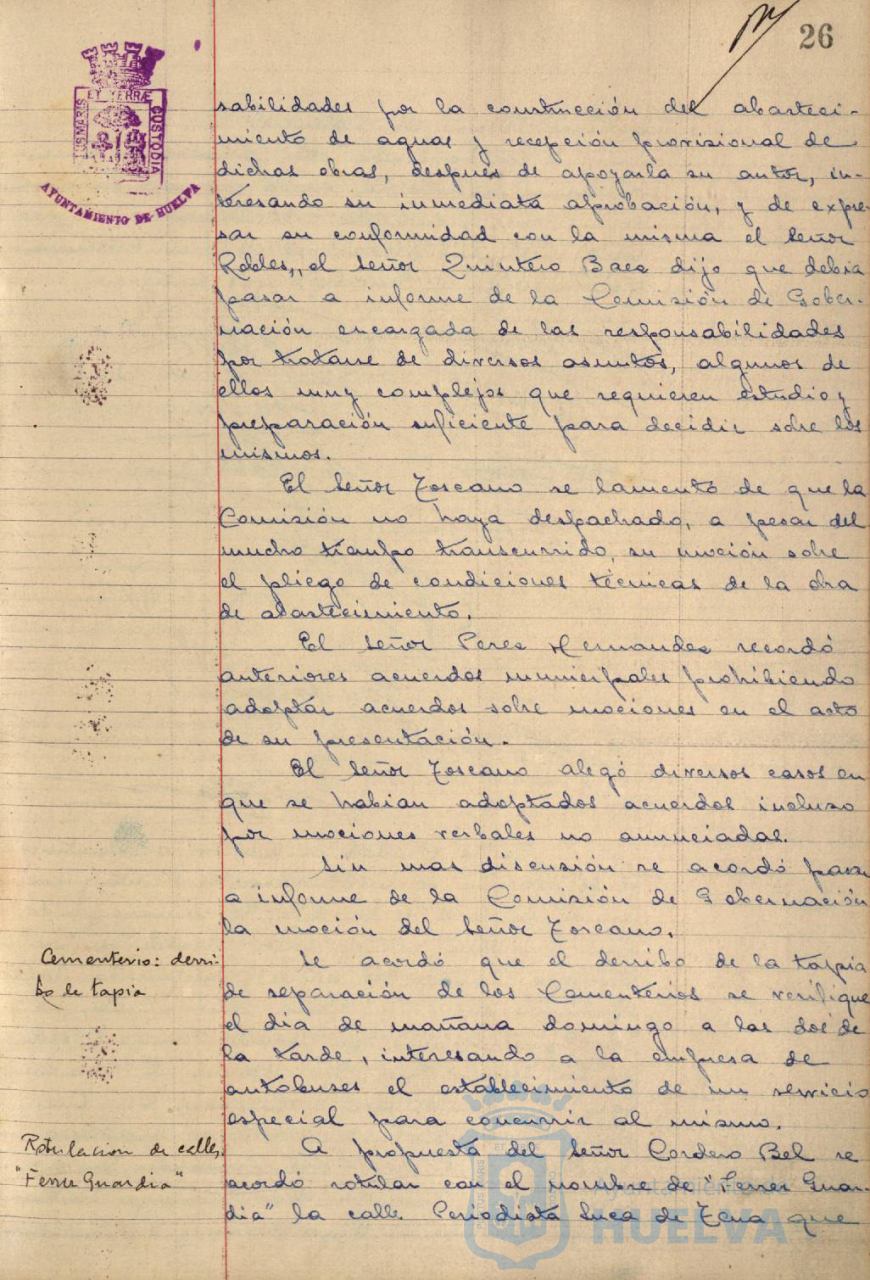 26
PORTUS MARIS ET TERRÆ CUSTODIA
AYUNTAMIENTO DE HUELVA
sabilidades por la construcción del abasteci-
miento de aguas y recepción provisional de
dichas obras, después de apoyarla su autor, in-
teresando su inmediata aprobación, y de expre-
sar su conformidad con la misma el Señor
Robles, el Señor Quintero Baez dijo que debia
pasar a informe de la Comisión de Gober-
nación encargada de las responsabilidades
por tratarse de diversos asuntos, algunos de
ellos muy complejos que requieren estudio y
preparación suficiente para decidir sobre los
mismos.
El Señor Toscano se lamentó de que la
Comisión no haya despachado, a pesar del
mucho tiempo transcurrido, su moción sobre
el pliego de condiciones técnicas de la obra
de abastecimiento.
El Señor Perez Hernandez recordó
anteriores acuerdos municipales prohibiendo
adoptar acuerdos sobre mociones en el acto
de su presentación.
El Señor Toscano alegó diversos casos en
que se habian adoptados acuerdos incluso
por mociones verbales no anunciadas.
Sin mas discusión se acordó pasar
a informe de la Comisión de Gobernación
la moción del Señor Toscano.
Cementerio: derri-
bo de tapia
Se acordó que el derribo de la tapia
de separación de los Cementerios se verifique
el dia de mañana domingo a las dos de
la tarde, interesando a la empresa de
autobuses el establecimiento de un servicio
especial para concurrir al mismo.
Rotulacion de calles,
"Ferrer Guardia"
A propuesta del Señor Cordero Bel se
acordó rotular con el nombre de "Ferrer Guar-
dia" la calle Periodista Luca de Tena que
Ayuntamiento de
HUELVA